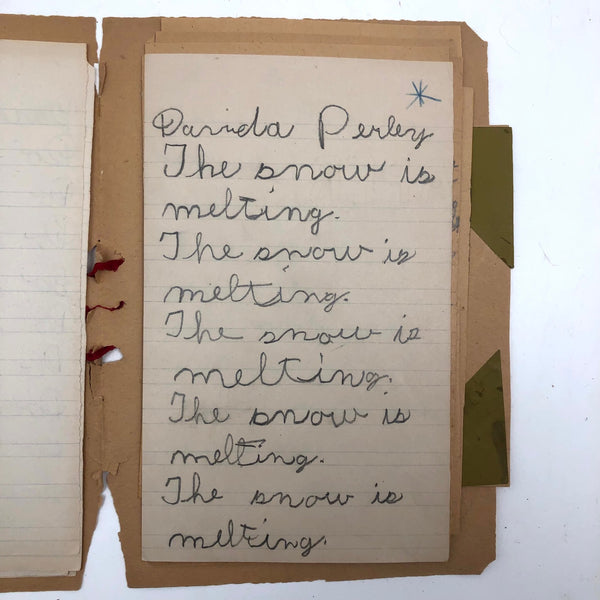 Davida Perley
The snow is
melting.
The snow is
melting.
The snow is
melting.
The snow is
melting.
The snow is
melting.